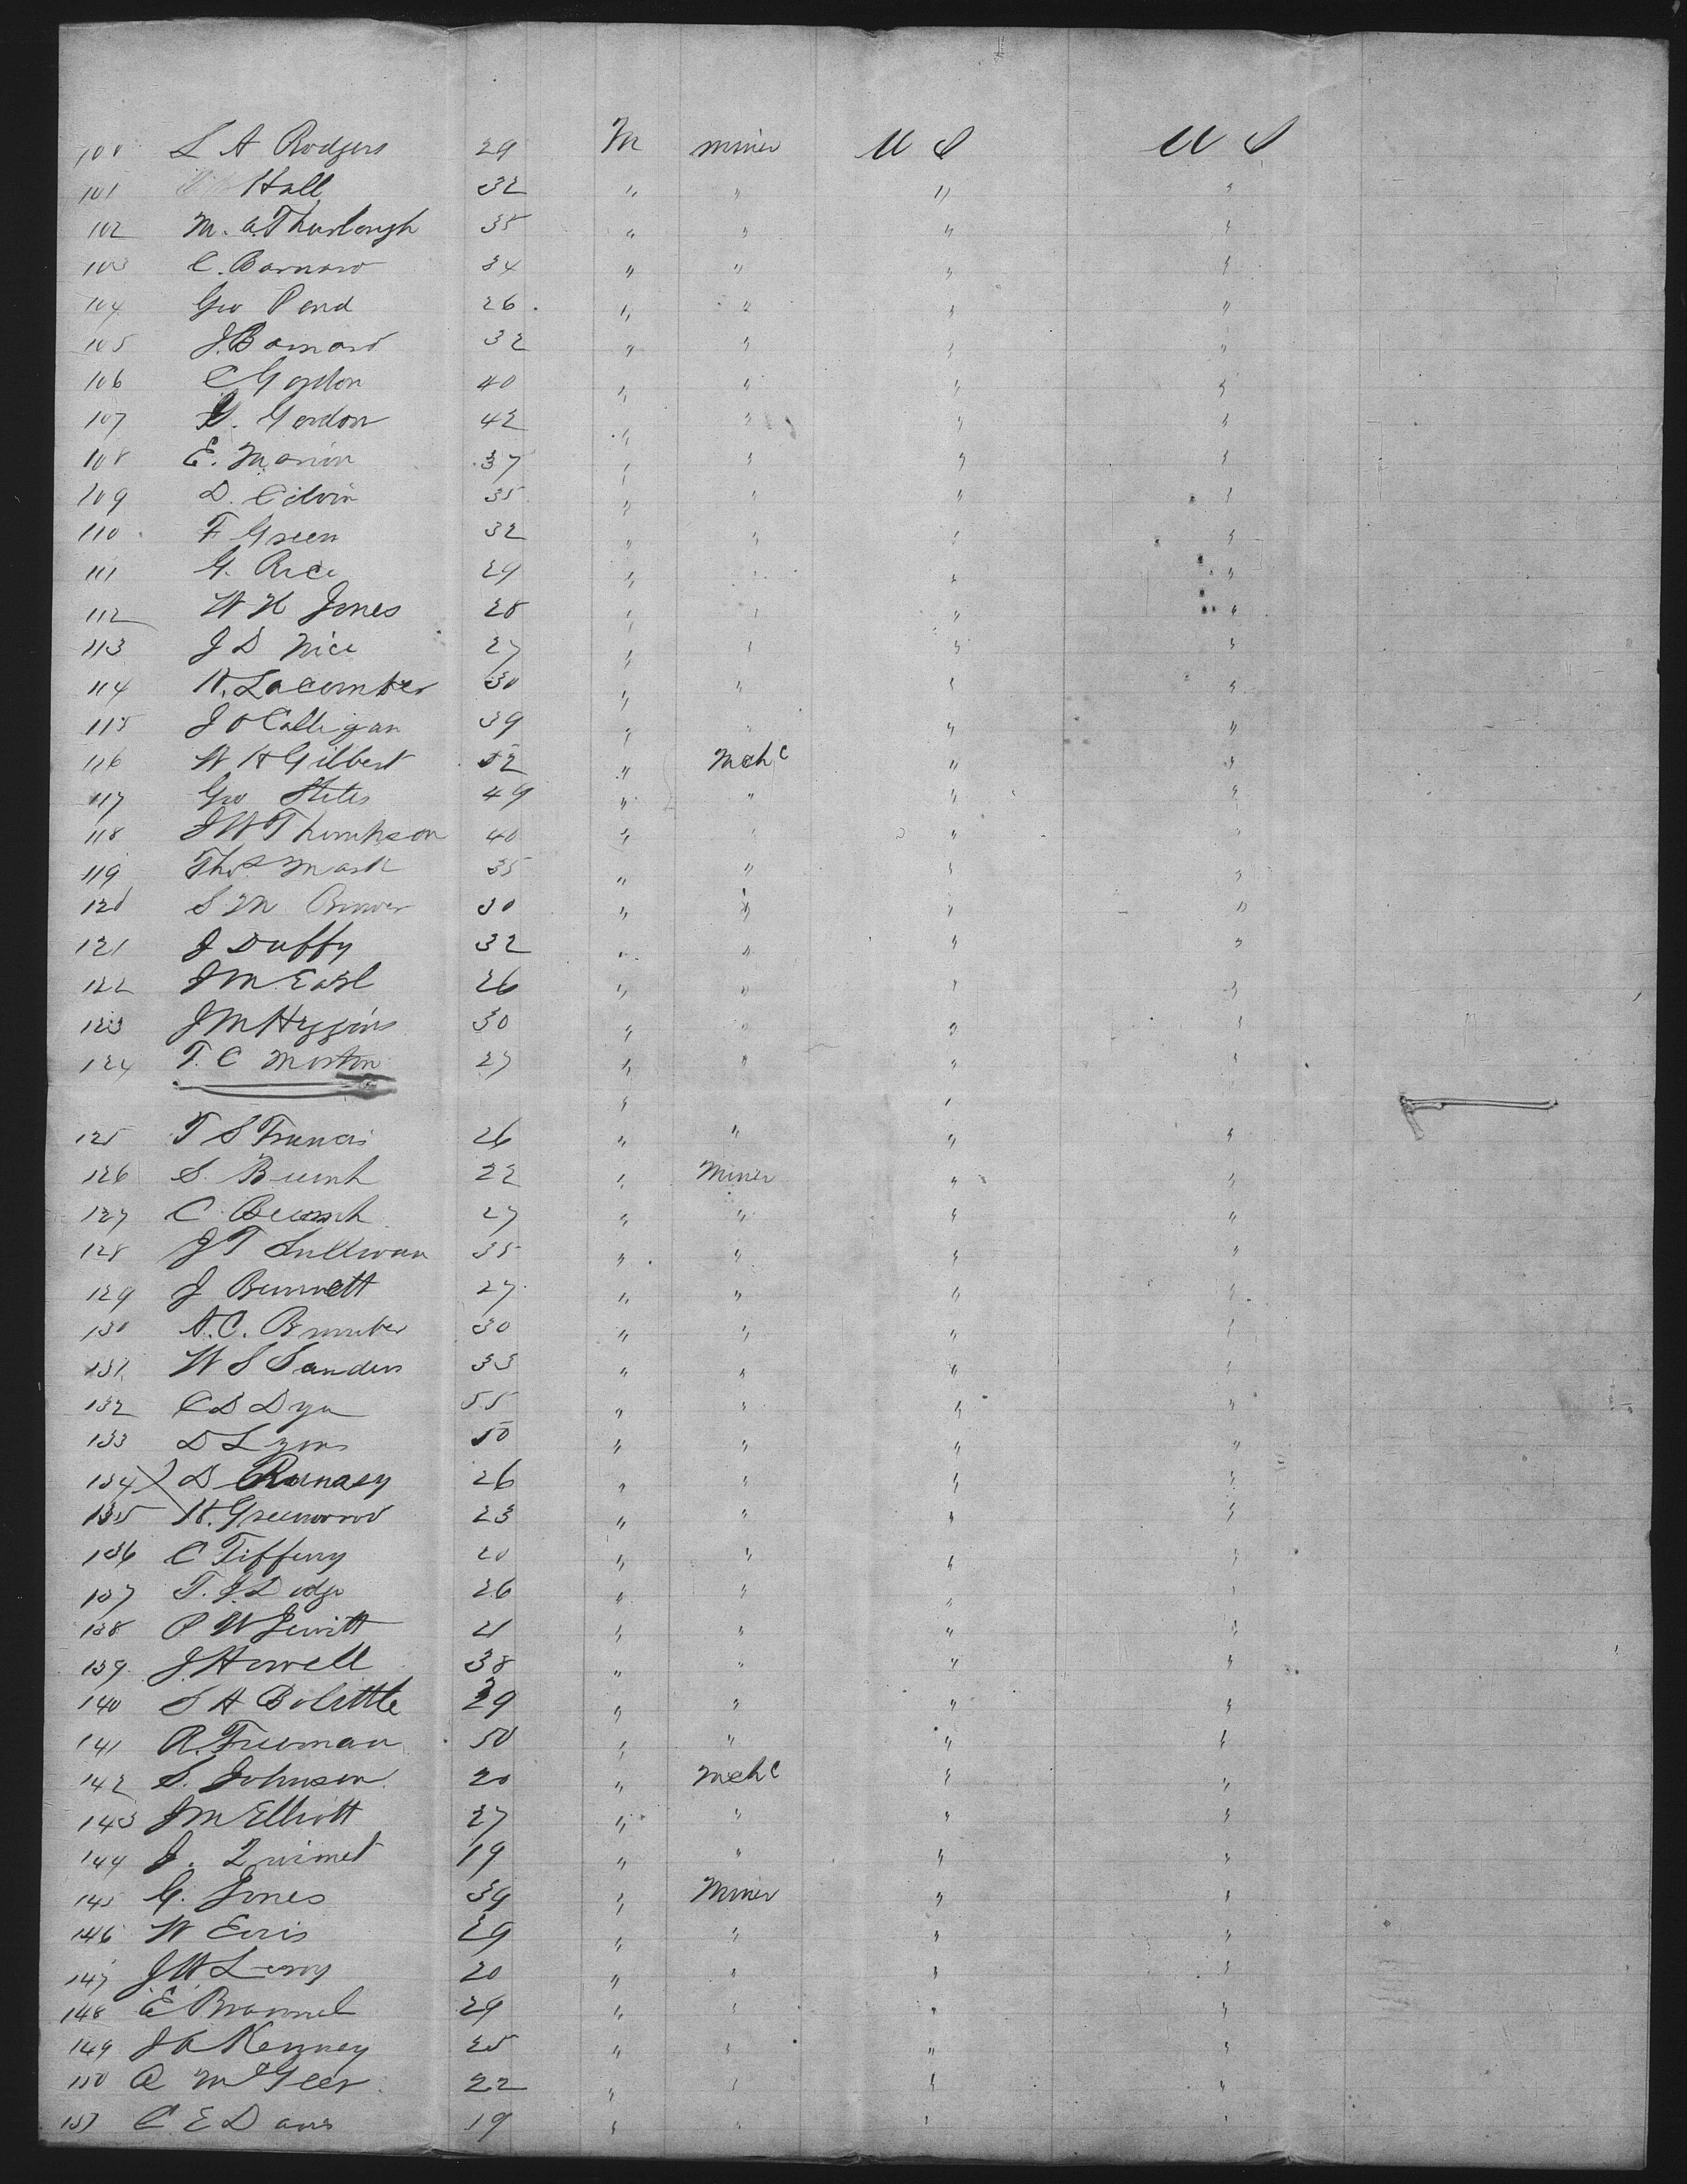 100 L A Rodgers 29 M miner U S U S
101 Hall 32 " " " "
102 M. A. Thurlough 35 " " " "
103 C. Barnard 34 " " " "
104 Geo Pond 26 " " " "
105 J. Barnard 32 " " " "
106 C Gordon 40 " " " "
107 G. Gordon 42 " " " "
108 E. Marion 37 " " " "
109 D. Colvin 35 " " " "
110 F Green 32 " " " "
111 G. Rice 29 " " " "
112 W H Jones 28 " " " "
113 J D Nice 27 " " " "
114 H. Lacomber 30 " " " "
115 J O Calligan 39 " " " "
116 W H Gilbert 52 " Mch c " "
117 Geo Stiles 49 " " " "
118 J W Thompson 40 " " " "
119 Thos Mark 35 " " " "
120 S M Brower 30 " " " "
121 J Duffy 32 " " " "
122 J M Earl 26 " " " "
123 J M Higgins 30 " " " "
124 F. C Morton 27 " " " "
" "
125 T S Francis 26 " " " "
126 S. 22 " Miner " "
127 C 27 " " " "
128 J T Sullivan 35 " " " "
129 J Burnett 27 " " " "
130 A. C. 30 " " " "
131 W S Sanders 33 " " " "
132 C D Dye 55 " " " "
133 D Lyons 50 " " " "
134 D Ramsey 26 " " " "
135 H. Greenwood 23 " " " "
136 C Tiffeny 20 " " " "
137 T. J. Dodge 26 " " " "
138 P W Jewitt 21 " " " "
139 J Howell 38 " " " "
140 S A Bolittle 39 " " " "
141 R. Freeman 50 " " " "
142 S. Johnson 20 " Mch c " "
143 J M Elliott 27 " " " "
144 J. Quimet 19 " " " "
145 G. Jones 39 " Miner " "
146 W Evis 29 " " " "
147 J W Leroy 20 " " " "
148 E Brammel 29 " " " "
149 J A Kenney 25 " " " "
150 A McGeer 22 " " " "
151 C E Davis 19 " " " "